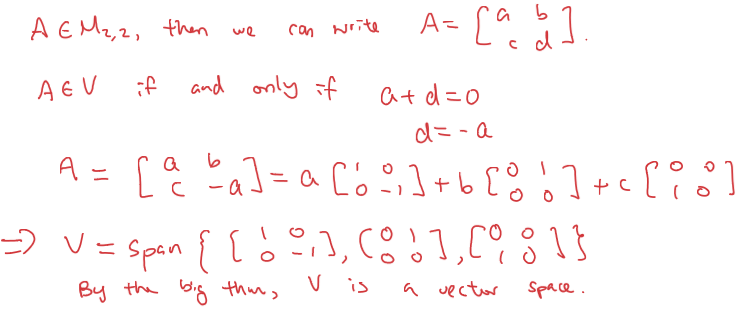 A ∈ M₂,₂, then we can write A = [a b; c d].
A ∈ V if and only if a + d = 0
d = -a
A = [a b; c -a] = a [1 0; 0 -1] + b [0 1; 0 0] + c [0 0; 1 0]
=> V = span { [1 0; 0 -1], [0 1; 0 0], [0 0; 1 0] }
By the big thm, V is a vector space.